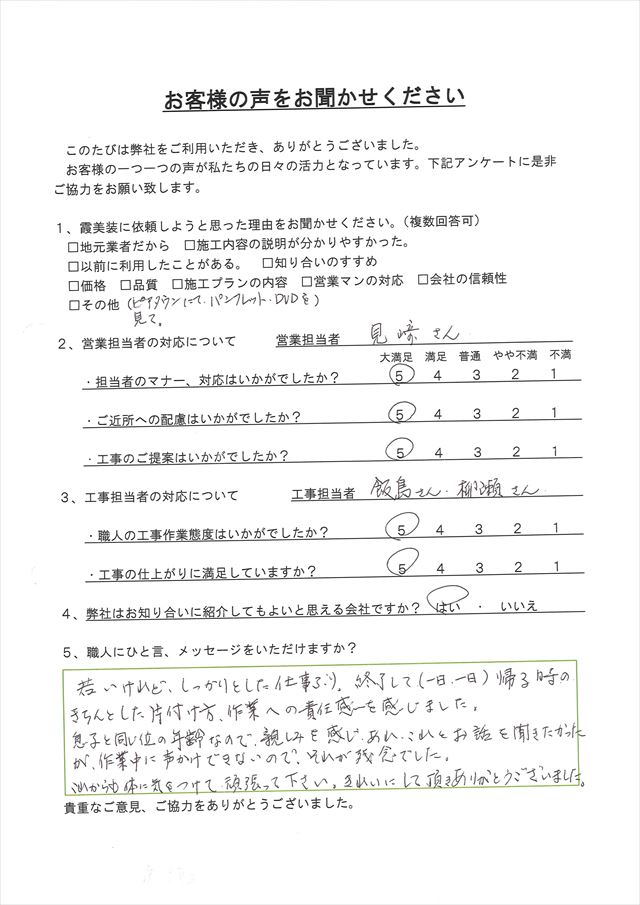 お客様の声をお聞かせください
このたびは弊社をご利用いただき、ありがとうございました。
お客様の一つ一つの声が私たちの日々の活力となっています。下記アンケートに是非
ご協力をお願い致します。
1、霞美装に依頼しようと思った理由をお聞かせください。（複数回答可）
□地元業者だから □施工内容の説明が分かりやすかった。
□以前に利用したことがある。 □知り合いのすすめ
□価格 □品質 □施工プランの内容 □営業マンの対応 □会社の信頼性
□その他（ピアタウンにて、パンフレット・DVDを）
見て。
2、営業担当者の対応について 営業担当者 見﨑さん
大満足 満足 普通 やや不満 不満
・担当者のマナー、対応はいかがでしたか？ 5 4 3 2 1
・ご近所への配慮はいかがでしたか？ 5 4 3 2 1
・工事のご提案はいかがでしたか？ 5 4 3 2 1
3、工事担当者の対応について 工事担当者 飯島さん・柳瀬さん
・職人の工事作業態度はいかがでしたか？ 5 4 3 2 1
・工事の仕上がりに満足していますか？ 5 4 3 2 1
4、弊社はお知り合いに紹介してもよいと思える会社ですか？ はい ・ いいえ
5、職人にひと言、メッセージをいただけますか？
若いけれど、しっかりとした仕事ぶり。終了して（一日、一日）帰る時の
きちんとした片付け方、作業への責任感を感じました。
息子と同じ位の年齢なので、親しみを感じ、あれ、これとお話を聞きたかった
が、作業中に声かけできないので、それが残念でした。
これからも体に気をつけて頑張って下さい。きれいにして頂きありがとうございました。
貴重なご意見、ご協力をありがとうございました。